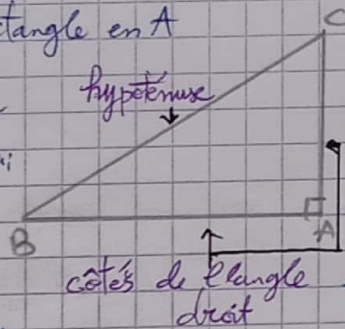 tangle en A
C
hypoténuse
B
A
côtés de l'angle
droit